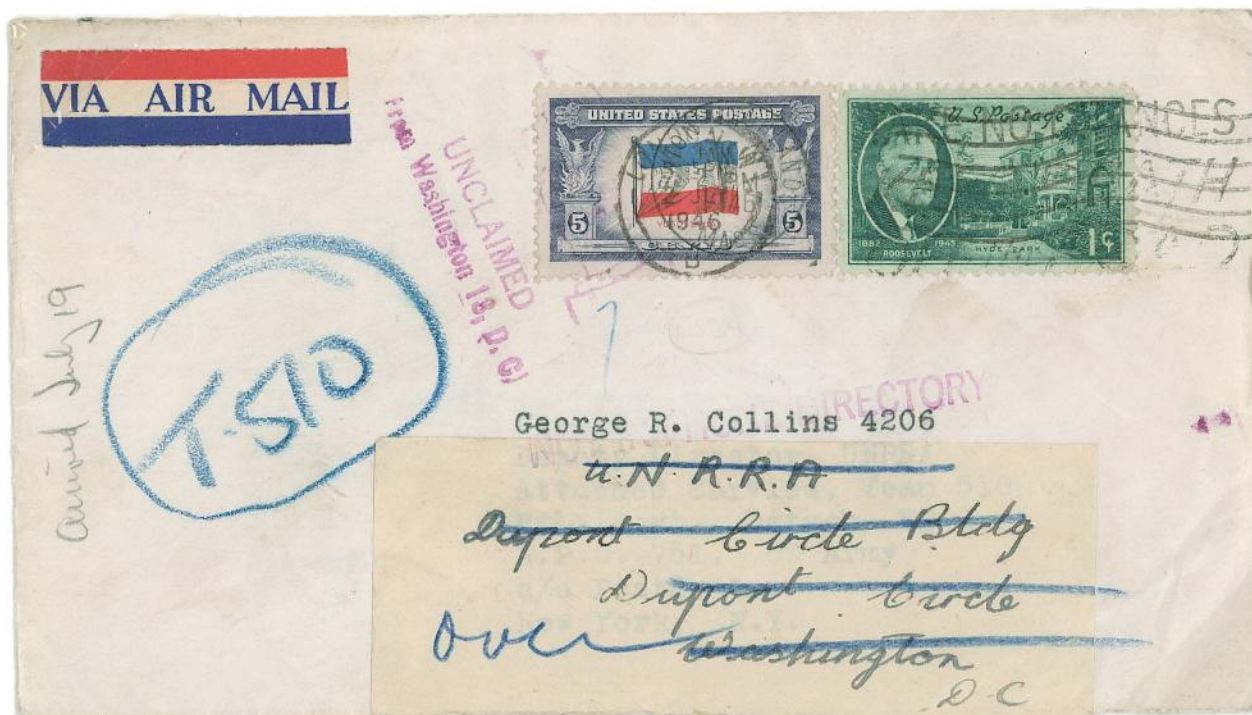 VIA AIR MAIL
UNCLAIMED
From Washington 18, D. C.
UNITED STATES POSTAGE
5 5
1946
U.S. Postage
1882 1945
ROOSEVELT
HYDE PARK
1¢
arrived July 19
T-510
DIRECTORY
George R. Collins 4206
U.N.R.R.A
Dupont Circle Bldg
Dupont Circle
over
Washington
D.C
New York, N.Y.